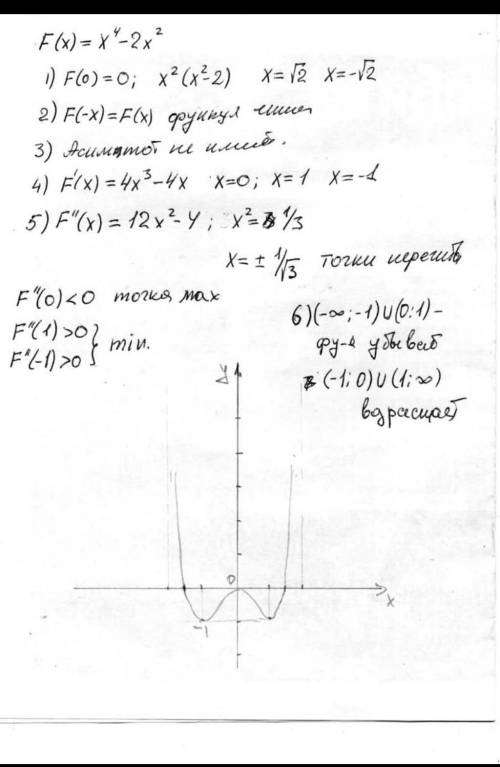 F(x) = x⁴-2x²
1) F(0) = 0; x²(x²-2) x=√2 x=-√2
2) F(-x) = F(x)
3) Асимптот не имеет.
4) F'(x) = 4x³-4x x=0; x=1 x=-1
5) F''(x) = 12x²-4; x²= 1/3
x= ± 1/√3 точки перегиба
F''(0)<0 точка max
F''(1)>0 } min.
F''(-1)>0
6) (-∞;-1)∪(0;1) -
фу-я убывает
(-1;0)∪(1;∞)
возрастает
y
0
-1
x